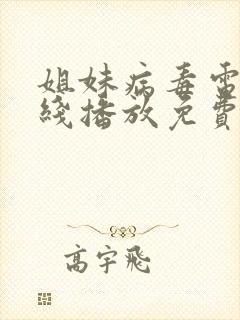 姐妹病毒雷
线播放免費
高宇飛